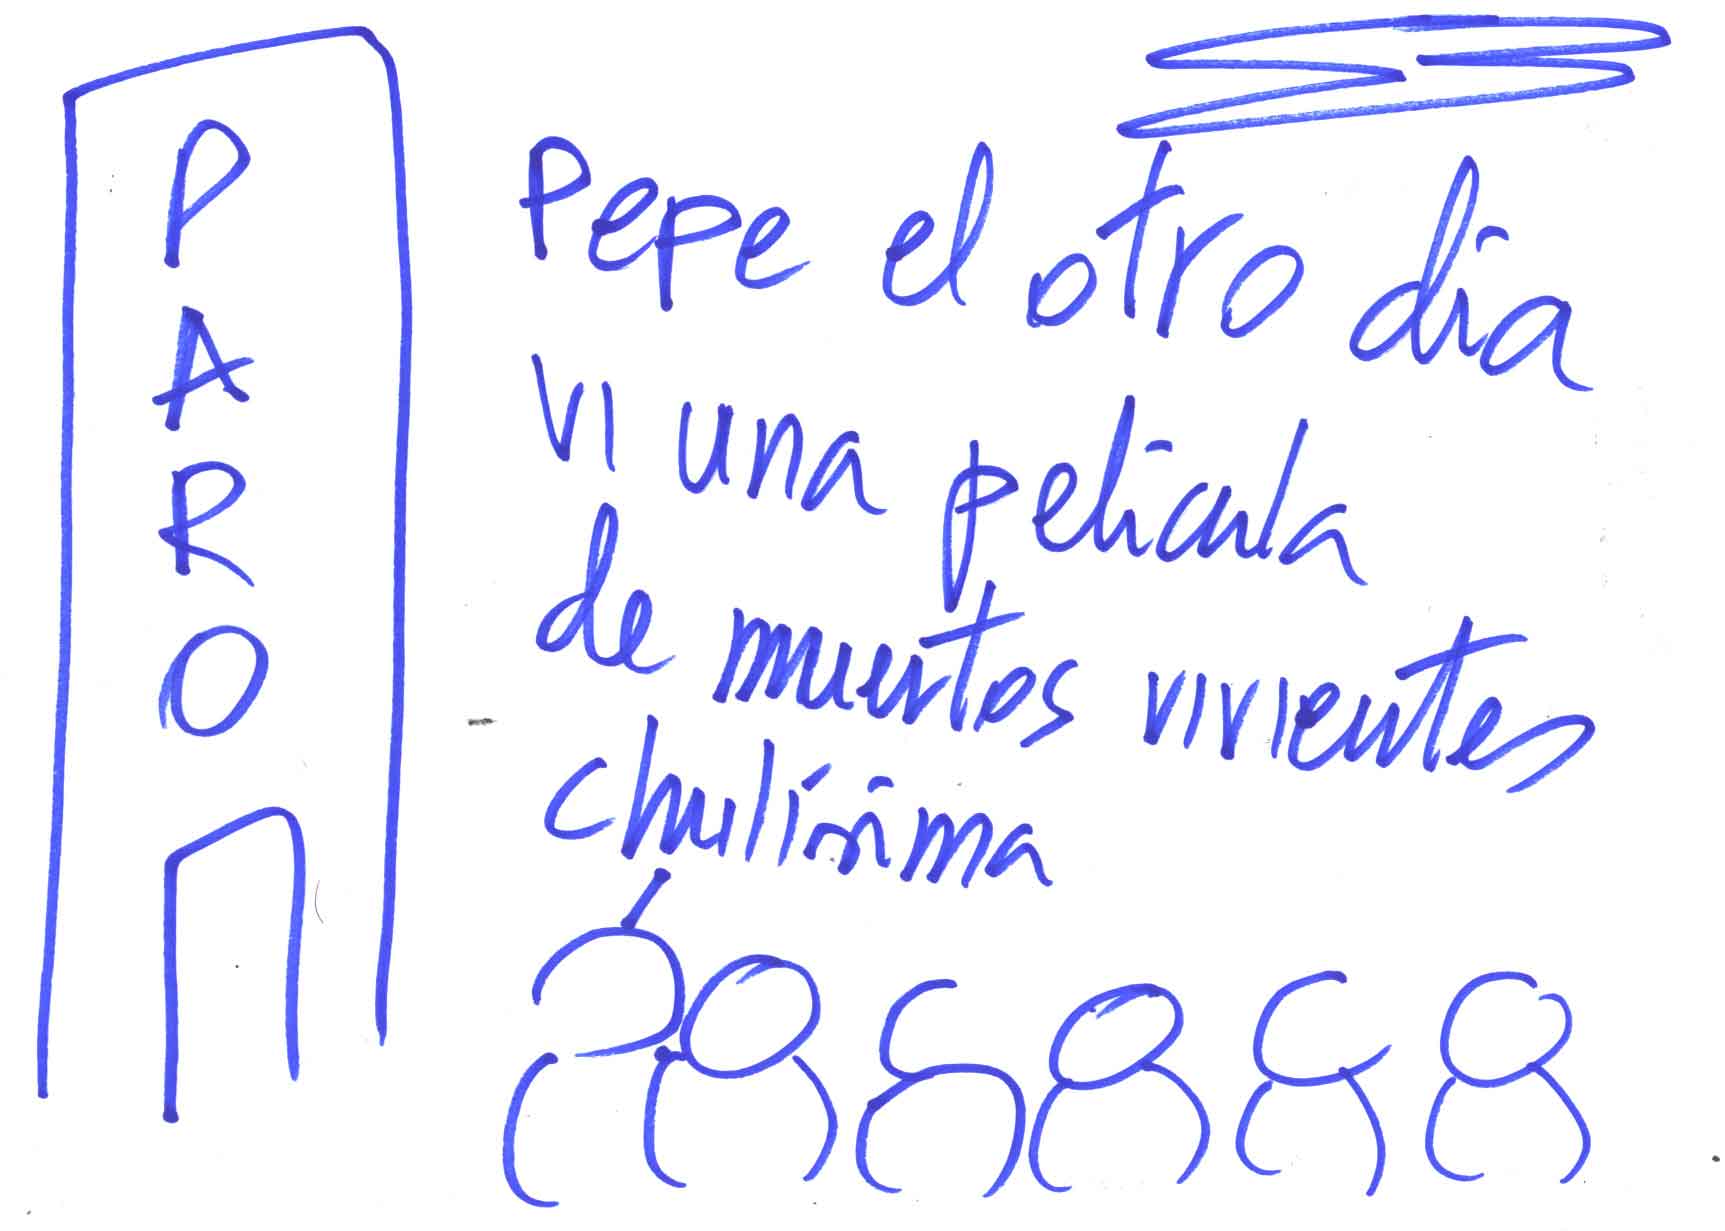 PARO
Pepe el otro día
vi una película
de muertos vivientes
chulísima